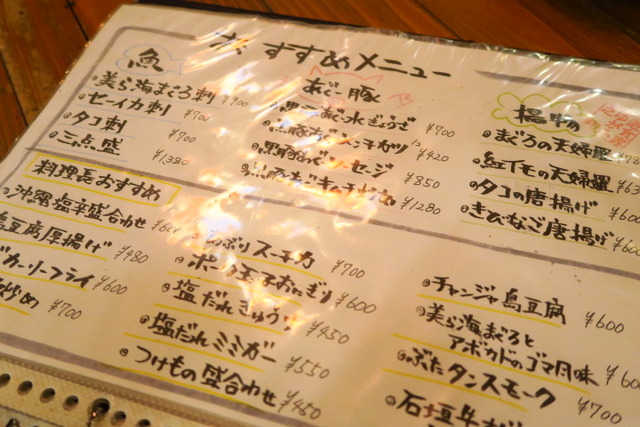 おすすめメニュー
魚
美ら海まぐろ刺 ¥900
セーイカ刺 ¥700
タコ刺 ¥700
三点盛 ¥1,380
あぐー豚
水ぎょうざ ¥700
メンチカツ ¥420
ソーセージ ¥850
¥1280
揚物
まぐろの天婦羅
紅イモの天婦羅
タコの唐揚げ ¥600
きびなご唐揚げ ¥600
料理長おすすめ
沖縄塩辛盛合わせ
島豆腐厚揚げ ¥480
カーリーフライ ¥600
炒め ¥700
あぶりスーチカ ¥700
ポーク玉子おにぎり ¥600
塩だれきゅうり ¥450
塩だれミミガー ¥550
つけもの盛合わせ ¥450
チャンジャ島豆腐 ¥600
美ら海まぐろと
アボカドのゴマ風味
ぶたタンスモーク ¥700
石垣牛